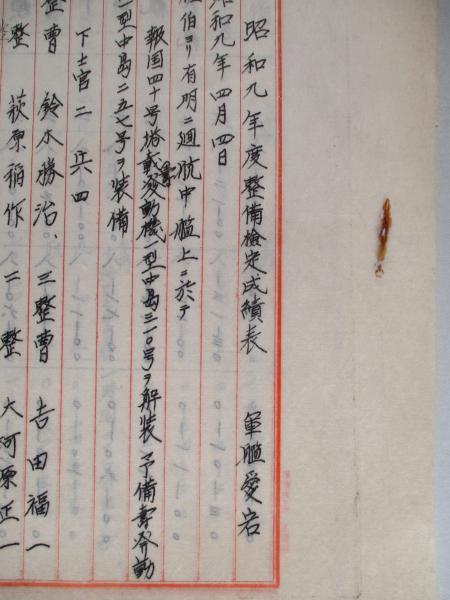 昭和九年度整備検定成績表 軍艦愛宕
昭和九年四月四日
佐伯ヨリ有明ニ廻航中艦上ニ於テ
報国四十号搭載発動機一型中島三一〇号ヲ解装予備寿発動
一型中島二五七号ヲ装備
下士官二 兵四
整曹 鈴木勝治、三整曹 吉田福一
整 萩原稲作 二整 大河原正一